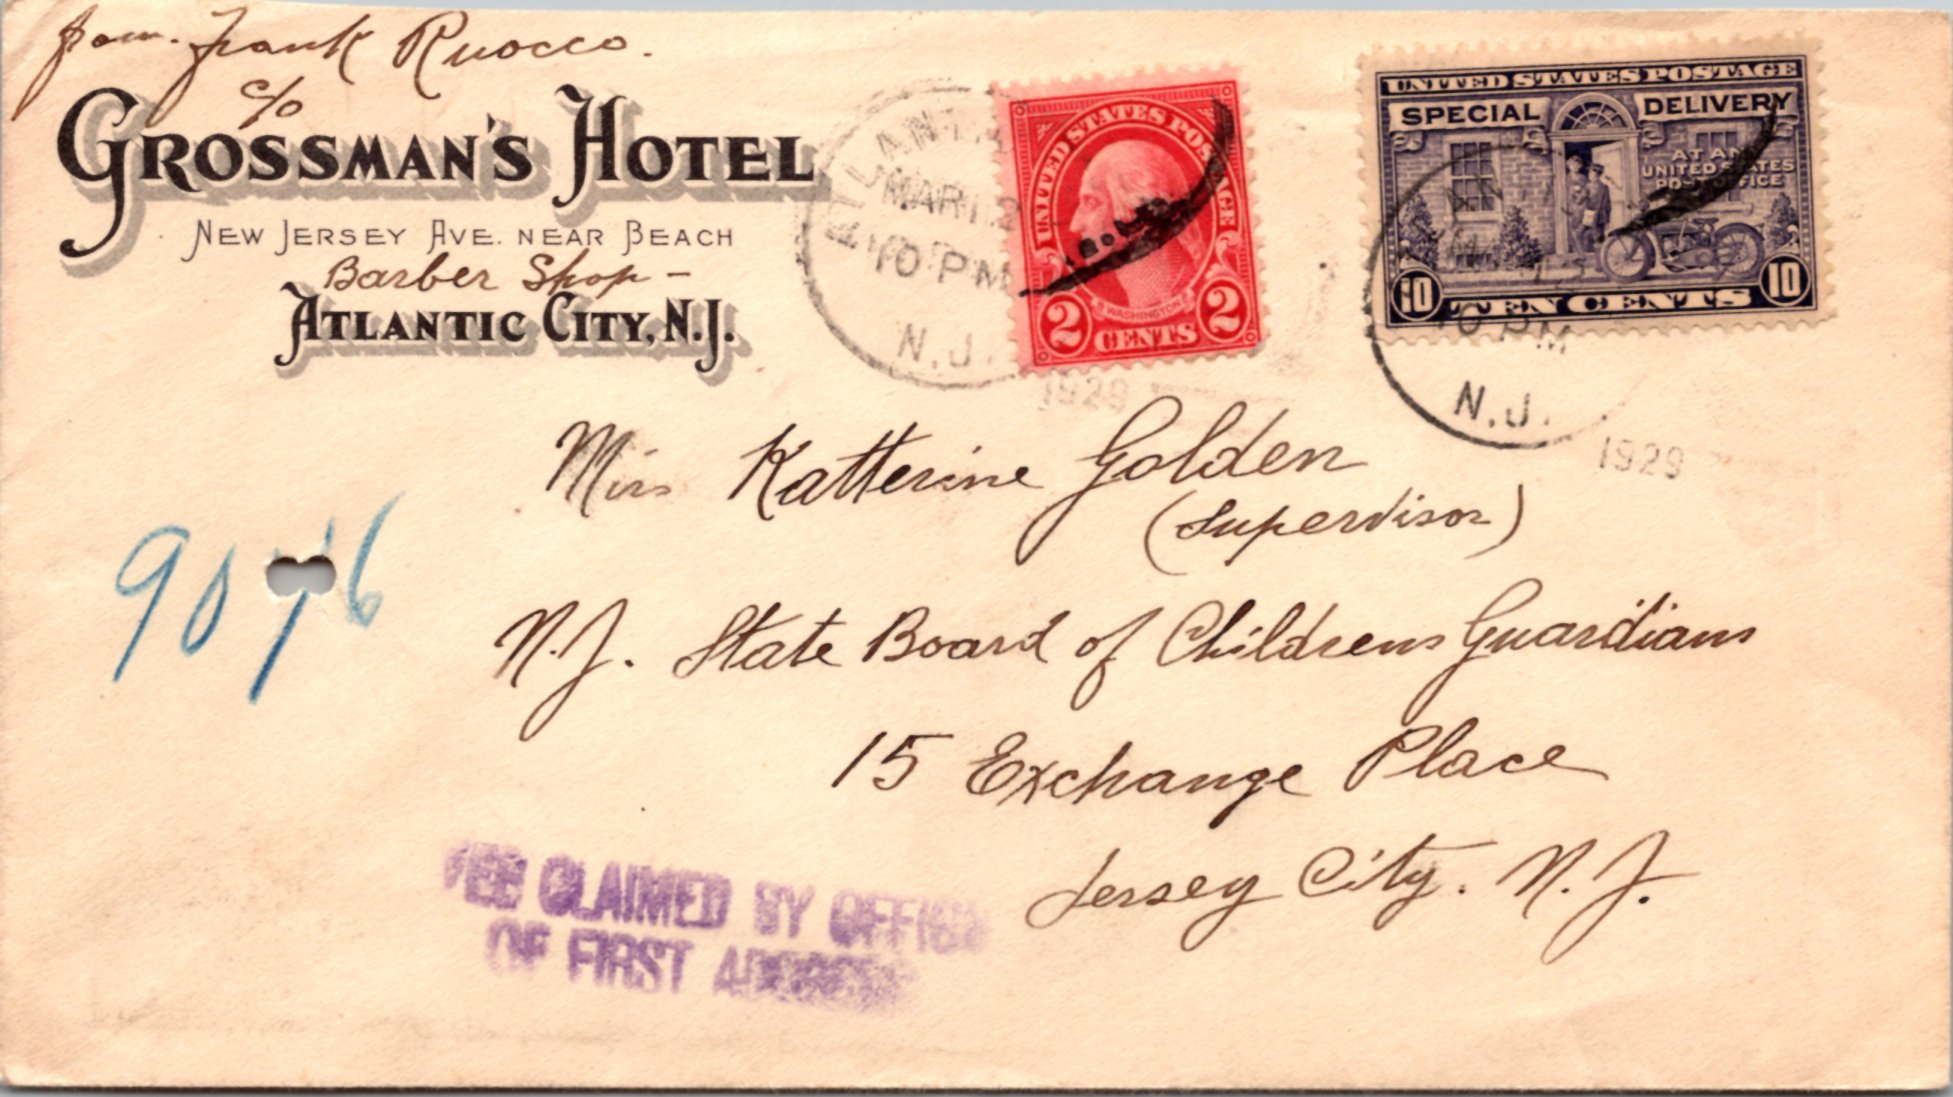 from. Frank Ruocco.
c/o
GROSSMAN'S HOTEL
NEW JERSEY AVE. NEAR BEACH
Barber Shop -
ATLANTIC CITY, N.J.
MAR
10 PM
N.J.
1929
UNITED STATES POSTAGE
WASHINGTON
2 CENTS 2
UNITED STATES POSTAGE
SPECIAL DELIVERY
AT ANY
UNITED STATES
POST OFFICE
10 TEN CENTS 10
10 PM
N.J.
1929
Miss Katterine Golden
(Supervisor)
N.J. State Board of Childrens Guardians
15 Exchange Place
Jersey City. N.J.
FEE CLAIMED BY OFFICE
OF FIRST ADDRESS